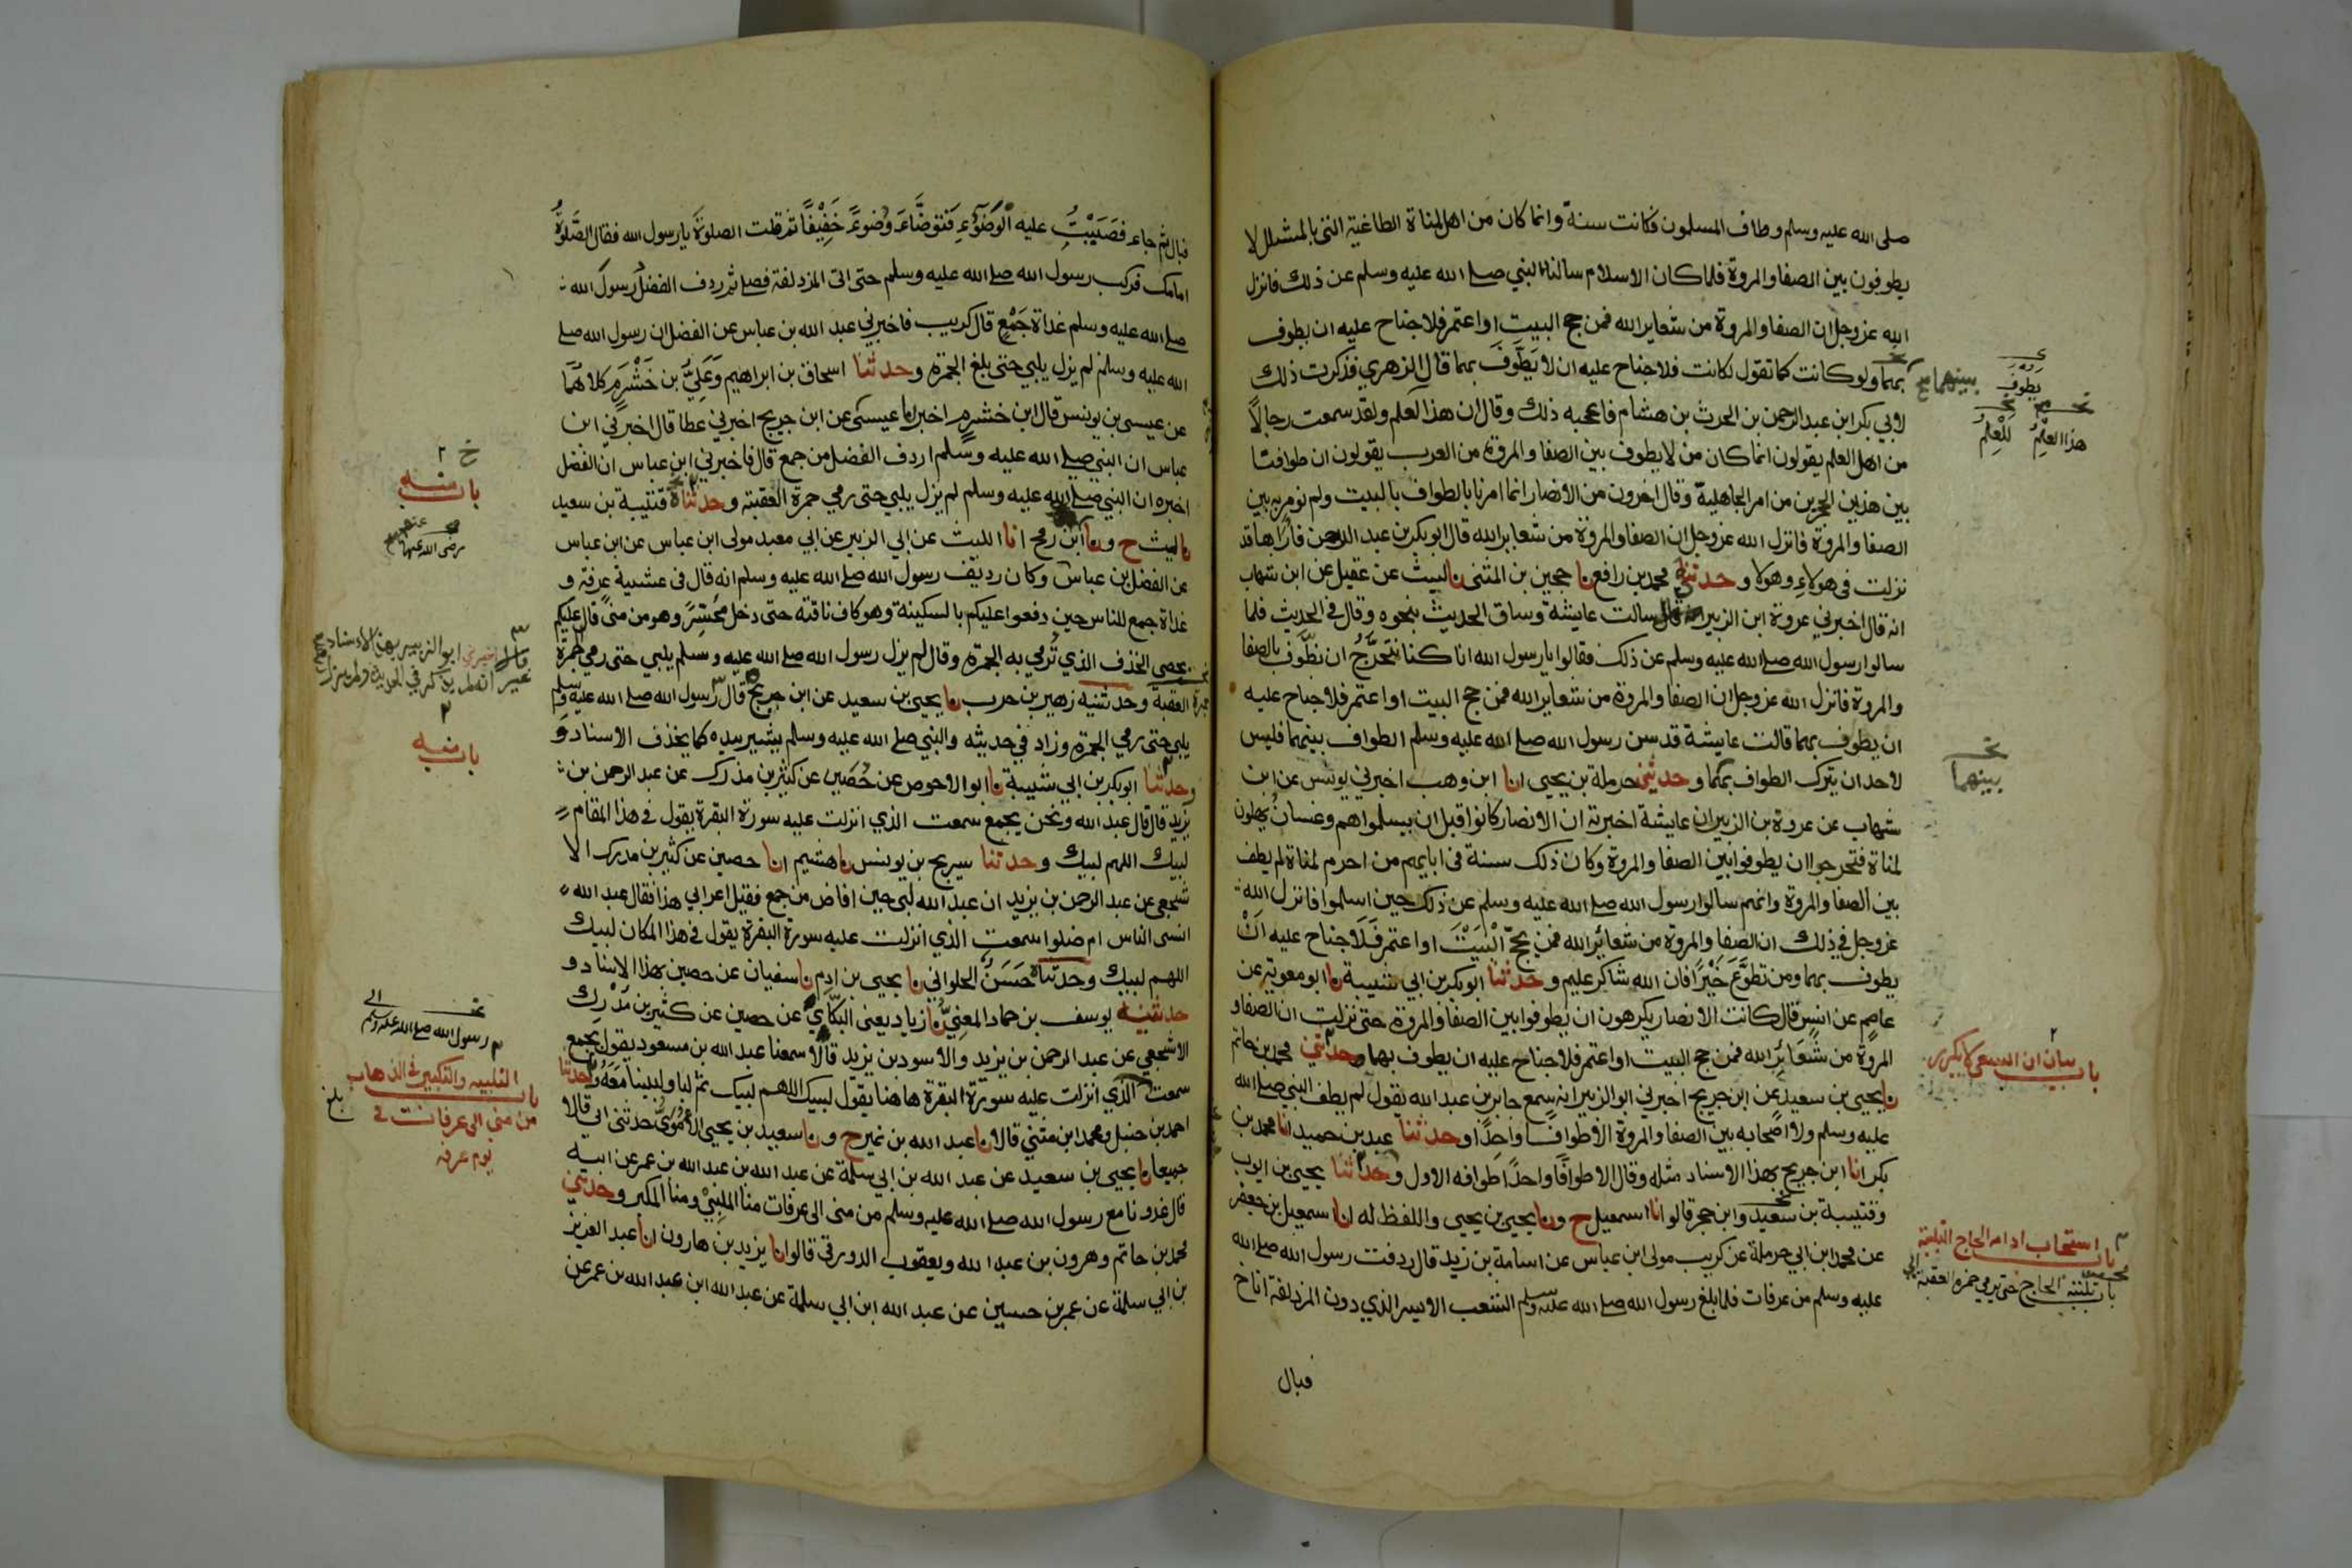 صلى الله عليه وسلم وطاف المسلمون فكانت سنة وانما كان من اهل لمناة الطاغية التي بالمشلل لا
يطوفون بين الصفا والمروة فلما كان الاسلام سالنا النبي صلى الله عليه وسلم عن ذلك فانزل
الله عز وجل ان الصفا والمروة من شعاير الله فمن حج البيت او اعتمر فلا جناح عليه ان يطوف
بهما ولو كانت كما تقول لكانت فلا جناح عليه ان لا يَطَّوَّفَ بهما قال الزهري فذكرت ذلك
لابي بكر ابن عبد الرحمن بن الحرث بن هشام فاعجبه ذلك وقال ان هذا العلم ولقد سمعت رجالاً
من اهل العلم يقولون انما كان من لا يطوف بين الصفا والمروة من العرب يقولون ان طوافنا
بين هذين الحجرين من امر الجاهلية وقال اخرون من الانصار انما امرنا بالطواف بالبيت ولم نومر به بين
الصفا والمروة فانزل الله عز وجل ان الصفا والمروة من شعاير الله قال ابو بكر بن عبد الرحمن فاراها قد
نزلت في هولاء وهولا وحدثني محمد بن رافع نا حجين بن المثنى نا ليث عن عقيل عن ابن شهاب
انه قال اخبرني عروة ابن الزبير قال سالت عايشة وساق الحديث بنحوه وقال في الحديث فلما
سالوا رسول الله صلى الله عليه وسلم عن ذلك فقالوا يا رسول الله انا كنا نتحرَّجُ ان نطَّوف بالصفا
والمروة فانزل الله عز وجل ان الصفا والمروة من شعاير الله فمن حج البيت او اعتمر فلا جناح عليه
ان يطوف بهما قالت عايشة قد سن رسول الله صلى الله عليه وسلم الطواف بينهما فليس
لاحد ان يترك الطواف بهما وحدثني حرملة بن يحيى انا ابن وهب اخبرني يونس عن ابن
شهاب عن عروة بن الزبير ان عايشة اخبرته ان الانصار كانوا قبل ان يسلموا هم وغسان يهلون
لمناة فتحرجوا ان يطوفوا بين الصفا والمروة وكان ذلك سنة في ابايهم من احرم لمناة لم يطف
بين الصفا والمروة وانهم سالوا رسول الله صلى الله عليه وسلم عن ذلك حين اسلموا فانزل الله
عز وجل في ذلك ان الصفا والمروة من شعائر الله فمن حجّ الْبَيْتَ او اعتمر فَلَا جناح عليه اَنْ
يطوف بهما ومن تطوَّعَ خَيْرًا فان الله شاكر عليم وحدثنا ابو بكر بن ابي شيبة نا ابو معوية عن
عاصم عن انس قال كانت الانصار يكرهون ان يطوفوا بين الصفا والمروة حتى نزلت ان الصفا و
المروة من شَعَائِرِ الله فمن حج البيت او اعتمر فلا جناح عليه ان يطوف بهما وحدثني محمد بن حاتم
نا يحيى بن سعيد عن ابن جريج اخبرني ابو الزبير انه سمع جابر بن عبد الله يقول لم يطف النبي صلى الله
عليه وسلم ولا اصحابه بين الصفا والمروة الا طوافا واحدًا وحدثنا عبد بن حميد انا محمد بن
بكر انا ابن جريج بهذا الاسناد مثله وقال الا طوافًا واحدًا طوافه الاول وحدثنا يحيى بن ايوب
وقتيبة بن سعيد وابن حجر قالوا انا اسمعيل ح ونا يحيى بن يحيى واللفظ له انا اسمعيل بن جعفر
عن محمد ابن ابي حرملة عن كريب مولى ابن عباس عن اسامة بن زيد قال ردفت رسول الله صلى الله
عليه وسلم من عرفات فلما بلغ رسول الله صلى الله عليه وسلم الشعب الايسر الذي دون المزدلفة اناخ
فبال
بينهما
يطوف
هذا العلم
لَلْعِلْمُ
بينهما
باب بيان ان السعي لا يكرر
باب استحباب ادامة الحاج التلبية
باب تلبية الحاج حتى يرمي جمرة العقبة
فبال ثم جاء فصَبَبْتُ عليه الْوَضُوْءِ فتوضَّاءَ وُضوءً خَفِيْفًا ثم قلت الصلوةَ يا رسول الله فقال الصَّلوةُ
امامك فركب رسول الله صلى الله عليه وسلم حتى اتى المزدلفة فصلى ثم ردف الفضل رسول الله
صلى الله عليه وسلم غداة جَمْعٍ قال كريب فاخبرني عبد الله بن عباس عن الفضل ان رسول الله صلى
الله عليه وسلم لم يزل يلبي حتى بلغ الجمرة وحدثنا اسحاق بن ابراهيم وَعَلِيُّ بن خَشْرَمٍ كلاهما
عن عيسى بن يونس قال ابن خشرم اخبرنا عيسى عن ابن جريج اخبرني عطا قال اخبرني ابن
عباس ان النبي صلى الله عليه وسلم اردف الفضل من جمع قال فاخبرني ابن عباس ان الفضل
اخبره ان النبي صلى الله عليه وسلم لم يزل يلبي حتى رمى جمرة العقبة وحدثنا قتيبة بن سعيد
نا ليث ح ونا ابن رمح انا الليث عن ابي الزبير عن ابي معبد مولى ابن عباس عن ابن عباس
عن الفضل بن عباس وكان رديف رسول الله صلى الله عليه وسلم انه قال في عشية عرفة و
غداة جمع للناس حين دفعوا عليكم بالسكينة وهو كاف ناقته حتى دخل محَسِّرًا وهو من منًى قال عليكم
بحصى الخذف الذي تُرمي به الجمرة وقال لم يزل رسول الله صلى الله عليه وسلم يلبي حتى رمى الجمرة
العقبة وحدثنيه زهير بن حرب نا يحيى بن سعيد عن ابن جريج قال رسول الله صلى الله عليه وسلم
يلبي حتى رمى الجمرة وزاد في حديثه والنبي صلى الله عليه وسلم يشير بيده كما يخذف الانسان
وحدثنا ابو بكر بن ابي شيبة نا ابو الاحوص عن حُصَين عن كثير بن مدرك عن عبد الرحمن بن
يزيد قال قال عبد الله ونحن بجمع سمعت الذي انزلت عليه سورة البقرة يقول في هذا المقام
لبيك اللهم لبيك وحدثنا سريج بن يونس نا هشيم انا حصين عن كثير بن مدرك الا
شجعي عن عبد الرحمن بن يزيد ان عبد الله لبى حين افاض من جمع فقيل اعرابي هذا فقال عبد الله
انسى الناس ام ضلوا سمعت الذي انزلت عليه سورة البقرة يقول في هذا المكان لبيك
اللهم لبيك وحدثناه حَسَنٌ الحلواني نا يحيى بن ادم نا سفيان عن حصين بهذا الاسناد و
حدثنيه يوسف بن حماد المعنِيُّ نا زياد يعني البكَّاي عن حصين عن كثير بن مدرك
الاشجعي عن عبد الرحمن بن يزيد والاسود بن يزيد قالا سمعنا عبد الله بن مسعود يقول بجمع
سمعت الذي انزلت عليه سورة البقرة هاهنا يقول لبيك اللهم لبيك ثم لبا ولبينا مَعَهُ وحدثنا
احمد بن حنبل ومحمد ابن مثني قالا نا عبد الله بن نمير ح ونا سعيد بن يحيى الاُمَوِيُّ حدثني ابي قالا
جميعا نا يحيى بن سعيد عن عبد الله بن ابي سلمة عن عبد الله بن عبد الله بن عمر عن ابيه
قال غدونا مع رسول الله صلى الله عليه وسلم من منى الى عرفات منا الملبيْ ومنا المكبر وحدثني
محمد بن حاتم وهرون بن عبد الله ويعقوب الدورقي قالوا نا يزيد بن هارون انا عبد العزيز
بن ابي سلمة عن عمر بن حسين عن عبد الله ابن ابي سلمة عن عبد الله ابن عبد الله بن عمر عن
باب منه
رضى الله عنهما
ابو الزبير بهذا الاسناد
غير انه لم يذكر في الحديث ولم يزل
باب منه
رسول الله صلى الله عليه وسلم
باب التلبيه والتكبير في الذهاب
من منى الى عرفات في
يوم عرفه
بلغ